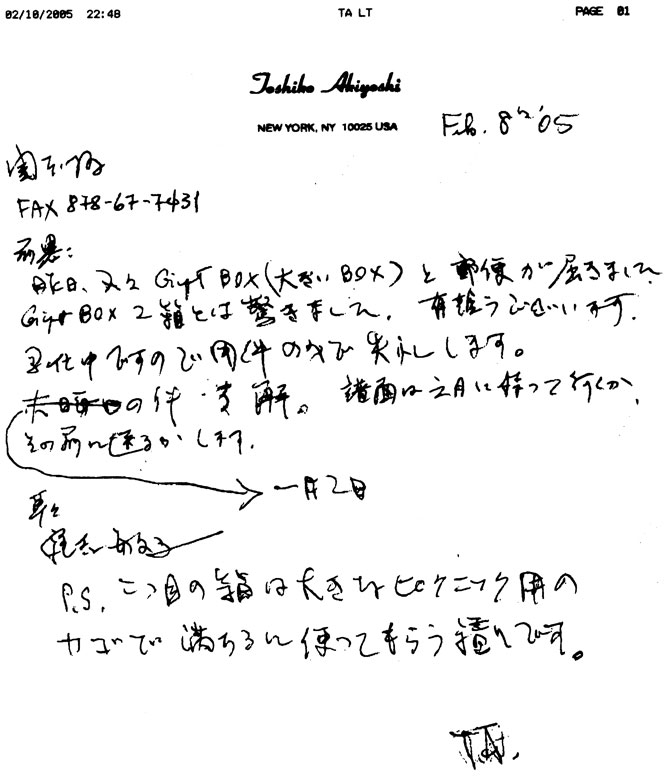 02/10/2005 22:48 TA LT PAGE 01
Toshiko Akiyoshi
NEW YORK, NY 10025 USA
Feb. 8th '05
FAX 878-67-7431
前略:
昨日、又々 Gift BOX (大きい BOX) と 郵便が届きました
Gift BOX 2箱とは驚きました。有難うございます.
ですので用件のみで失礼します。
の件 了解。譜面は 月に持って行くか、
その前に送るかします.
一月2日
草々
敏子
P.S. 二つ目の箱は大きなピクニック用の
カゴで 満ちるに使ってもらう積りです。
T.A.